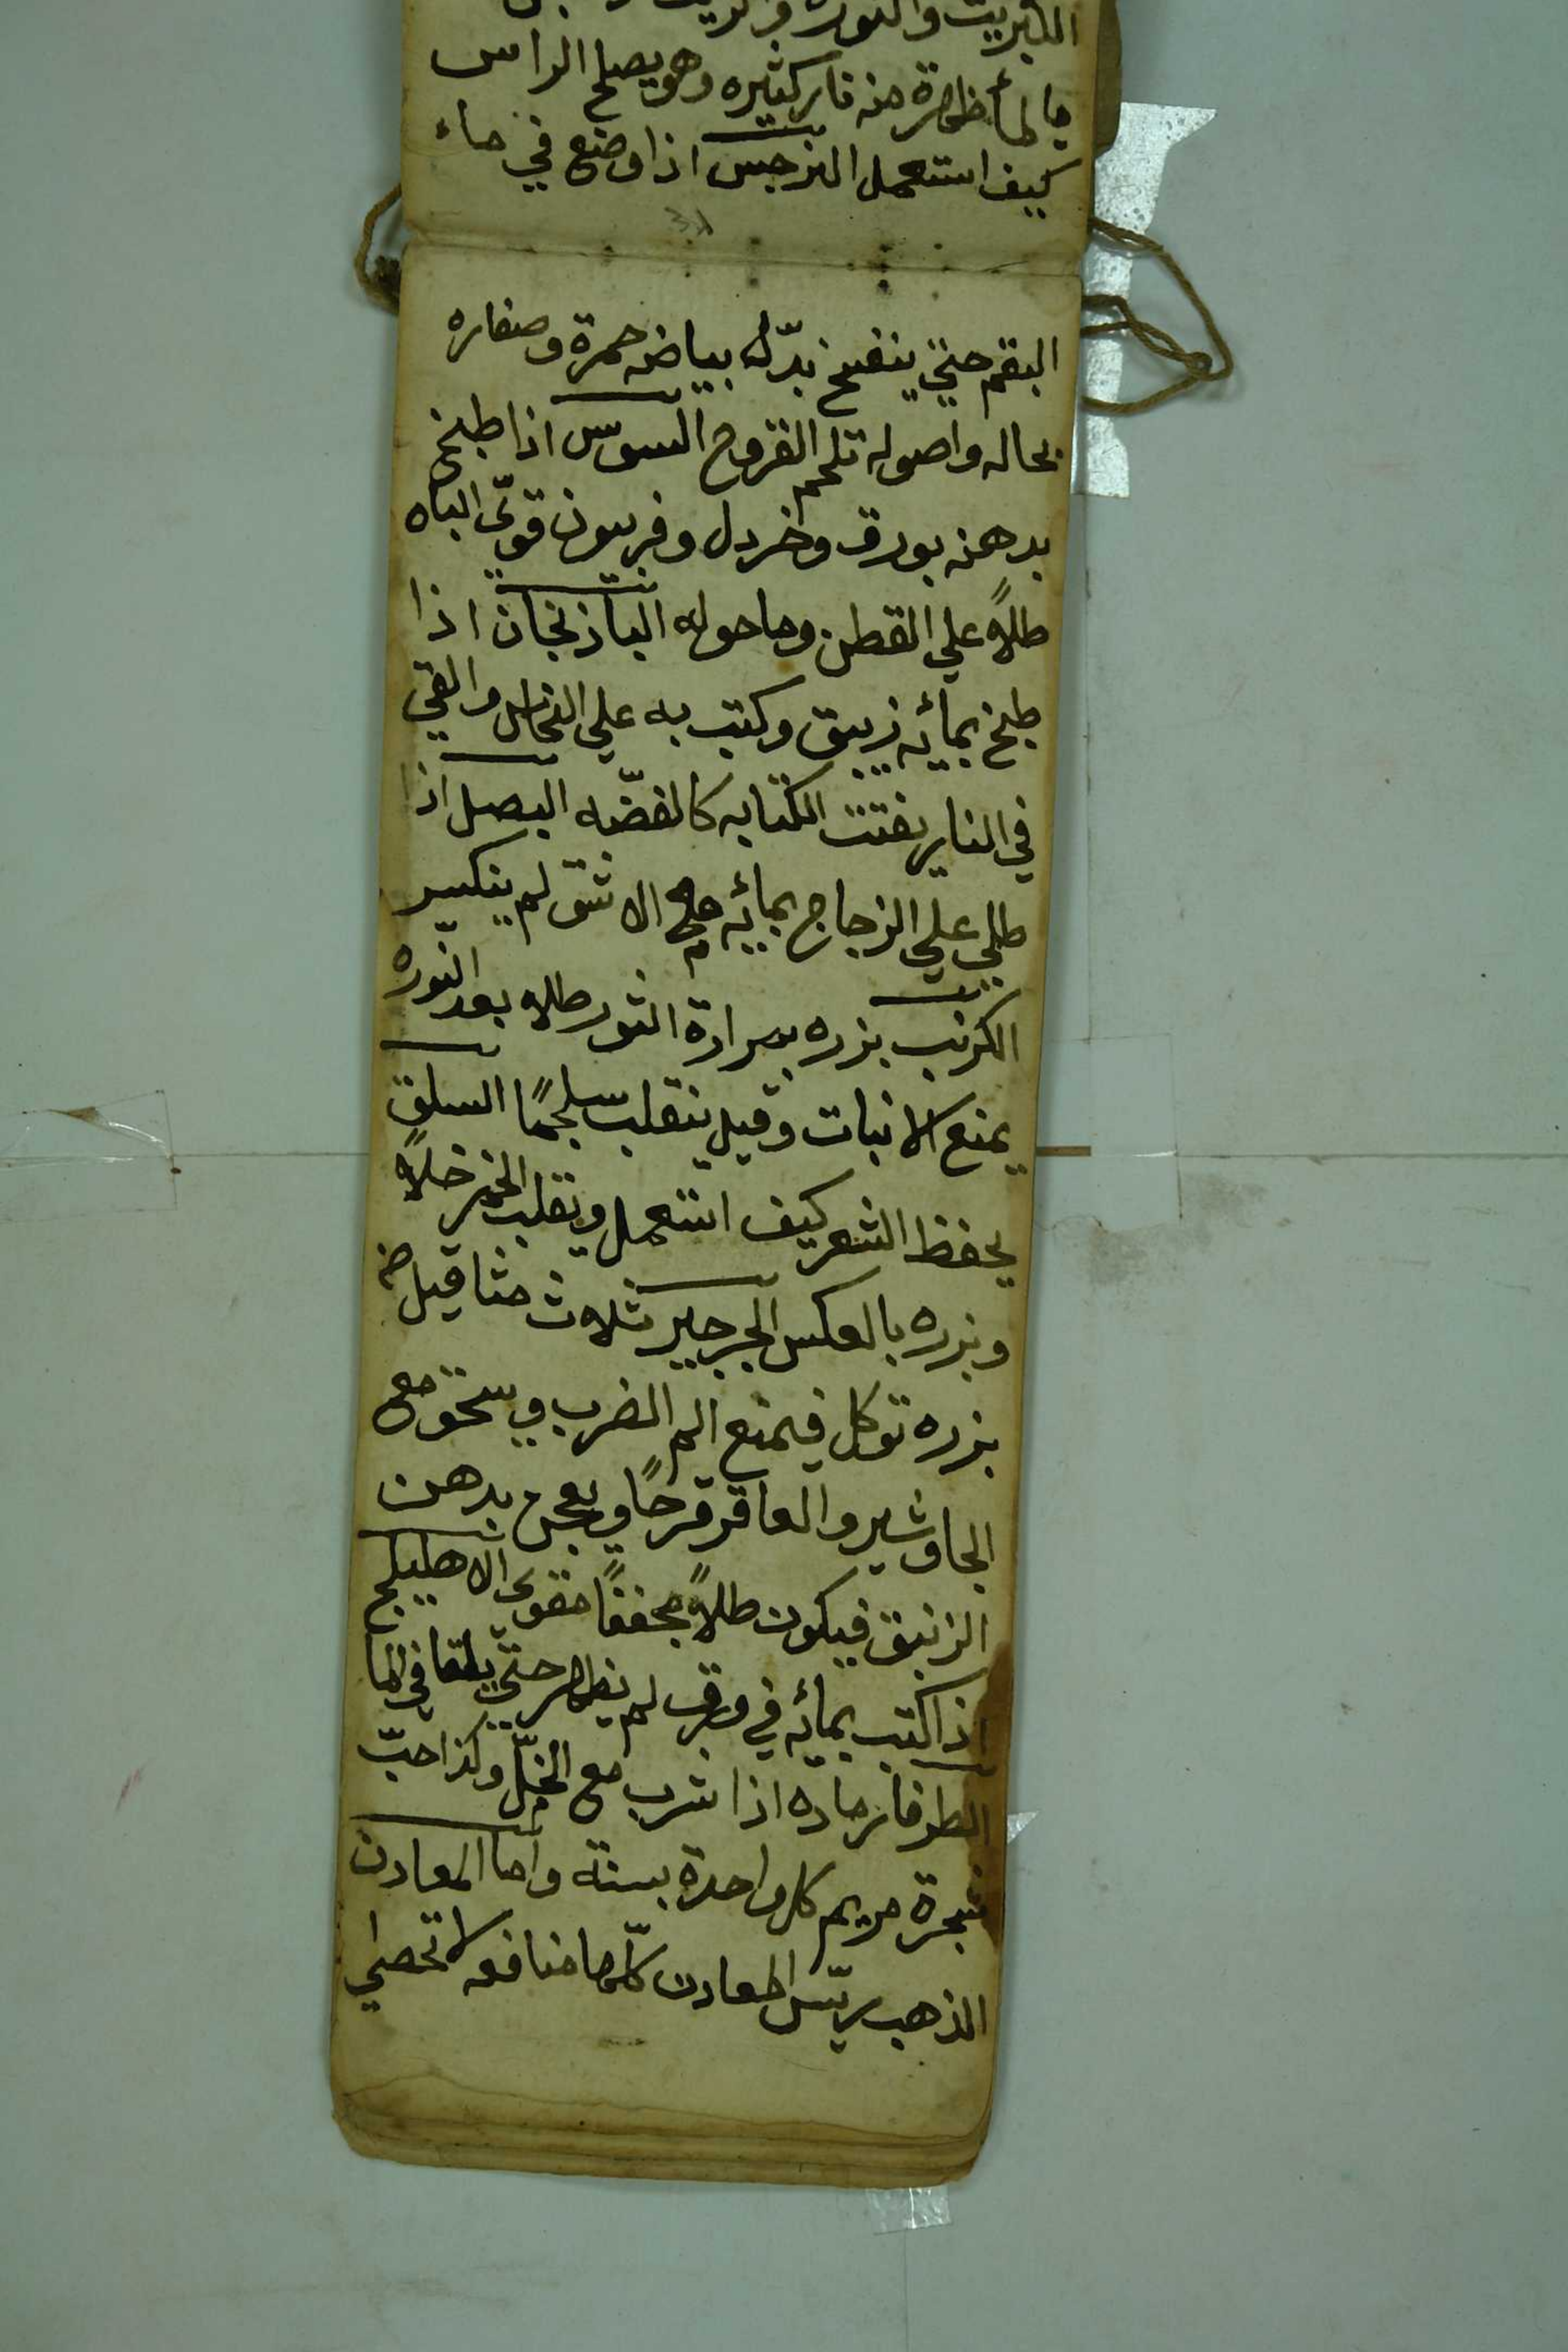 الكبريت والنوره
بالما ظهرة منه نار كثيره وهو يصلح الراس
كيف استعمل النرجس اذا وضع في ماء
البقم حتي ينفتح تبدّل بياضه حمرة وصفاره
بحاله واصوله تلحم القروح السوسن اذا طبخ
بدهنه بورق وخردل وفربيون قويّ الباه
طلاءً علي القطن وما حوله الباذنجان اذا
طبخ بمائه زيبق وكتب به علي النحاس والقي
في النار بقيت الكتابه كالفضّه البصل اذا
طلي علي الزجاج بمائه مع الاشق لم ينكسر
الكرنب بزره بمرارة الثور طلاء بعد النّوره
يمنع الانبات وقيل ينقلب سلجمًا السلق
يحفظ الشعر كيف استعمل ويقلب الخمر خلاً
وبزره بالعكس الجرجير ثلاث مثاقيل من
بزره توكل فيمنع الم الضرب ويسحق مع
الجاوشير والعاقر قرحًا ويعجن بدهن
الزنبق فيكون طلاءً مجففًا مقوي الاهليلج
اذا كتب بمائه في ورق لم يظهر حتي يلقا في الما
الطرفا رماده اذا شرب مع الخلّ وكذا حبّ
شجرة مريم كل واحدة بسنة واما المعادن
الذهب ريّس المعادن كلّها منافعه لا تحصي